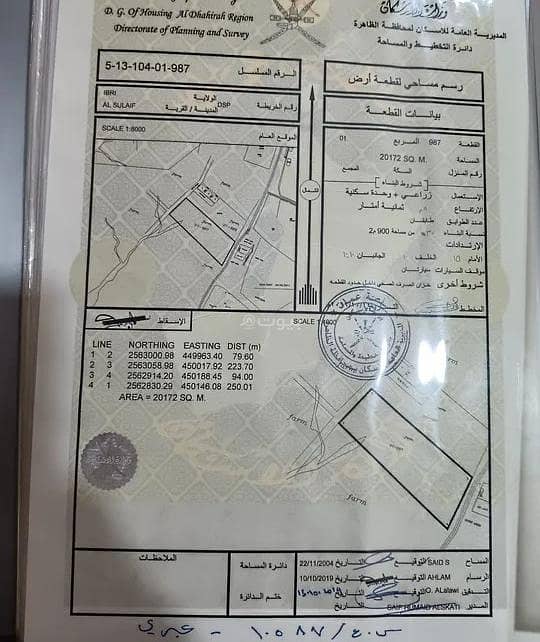 D. G. Of Housing Al Dhahirah Region
Directorate of Planning and Survey
المديرية العامة للاسكان لمحافظة الظاهرة
دائرة التخطيط والمساحة
5-13-104-01-987
الرقم المسلسل
رسم مساحي لقطعة أرض
IBRI
الولاية
AL SULAIF
المدينة / القرية
DSP
رقم الخريطة
بيانات القطعة
SCALE 1:6000
الموقع العام
القطعة
987
المربع
01
المساحة
20172 SQ. M.
رقم المنزل
السكة
المجمع
شروط البناء
الإستعمال
زراعي + وحدة سكنية
الإرتفاع
ثمانية أمتار
عدد الطوابق
طابقان
نسبة البناء
من مساحة 900م2
الإرتدادات
الأمام
الخلف
الجانبان
موقف السيارات
سيارتان
شروط أخرى
خزان الصرف الصحي داخل حدود القطعة
المخطط
الشمال
بيوت
الإسقاط
LINE NORTHING EASTING DIST (m)
1 2 2563000.98 449963.40 79.60
2 3 2563058.98 450017.92 223.70
3 4 2562914.20 450188.45 94.00
4 1 2562830.29 450146.08 250.01
AREA = 20172 SQ. M.
farm
farm
الملاحظات
دائرة المساحة
ختم الدائرة
22/11/2004
التاريخ
التوقيع
SAID S
المساح
10/10/2019
التاريخ
التوقيع
AHLAM
الرسام
التاريخ
O. ALalawi
التدقيق
التاريخ
SAIF HUMAID ALSKATI
المدير
س ع / ١٠٥٨٧ - عبري